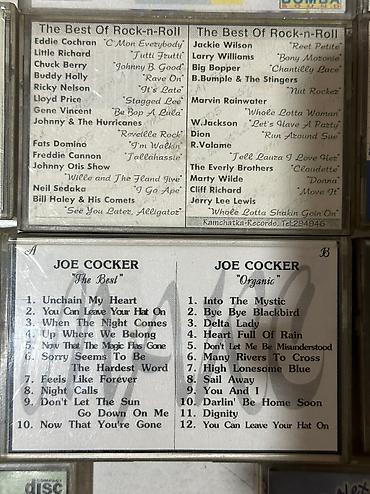 BOMBA
The Best Of Rock-n-Roll
Eddie Cochran "C'Mon Everybody"
Little Richard "Tutti Frutti"
Chuck Berry "Johnny B. Good"
Buddy Holly "Rave On"
Ricky Nelson "It's Late"
Lloyd Price "Stagged Lee"
Gene Vincent "Be Bop A Lula"
Johnny & The Hurricanes
"Reveille Rock"
Fats Domino "I'm Walkin'
Freddie Cannon "Tallahassie"
Johnny Otis Show
"Wille and The Hand Jive"
Neil Sedaka "I Go Ape"
Bill Haley & His Comets
"See You Later, Alligator"
The Best Of Rock-n-Roll
Jackie Wilson "Reet Petite"
Larry Williams "Bony Moronie"
Big Bopper "Chantilly Lace"
B.Bumple & The Stingers
"Nut Rocker"
Marvin Rainwater
"Whole Lotta Woman"
W.Jackson "Let's Have A Party"
Dion "Run Around Sue"
R.Volame
"Tell Laura I Love Her"
The Everly Brothers "Claudette"
Marty Wilde "Donna"
Cliff Richard "Move It"
Jerry Lee Lewis
"Whole Lotta Shakin Goin'On"
Kamchatka-Recordo, Tel.294946
A
JOE COCKER
"The Best"
1. Unchain My Heart
2. You Can Leave Your Hat On
3. When The Night Comes
4. Up Where We Belong
5. Now That The Magic Has Gone
6. Sorry Seems To Be
The Hardest Word
7. Feels Like Forever
8. Night Calls
9. Don't Let The Sun
Go Down On Me
10. Now That You're Gone
B
JOE COCKER
"Organic"
1. Into The Mystic
2. Bye Bye Blackbird
3. Delta Lady
4. Heart Full Of Rain
5. Don't Let Me Be Misunderstood
6. Many Rivers To Cross
7. High Lonesome Blue
8. Sail Away
9. You And I
10. Darlin' Be Home Soon
11. Dignity
12. You Can Leave Your Hat On
disc